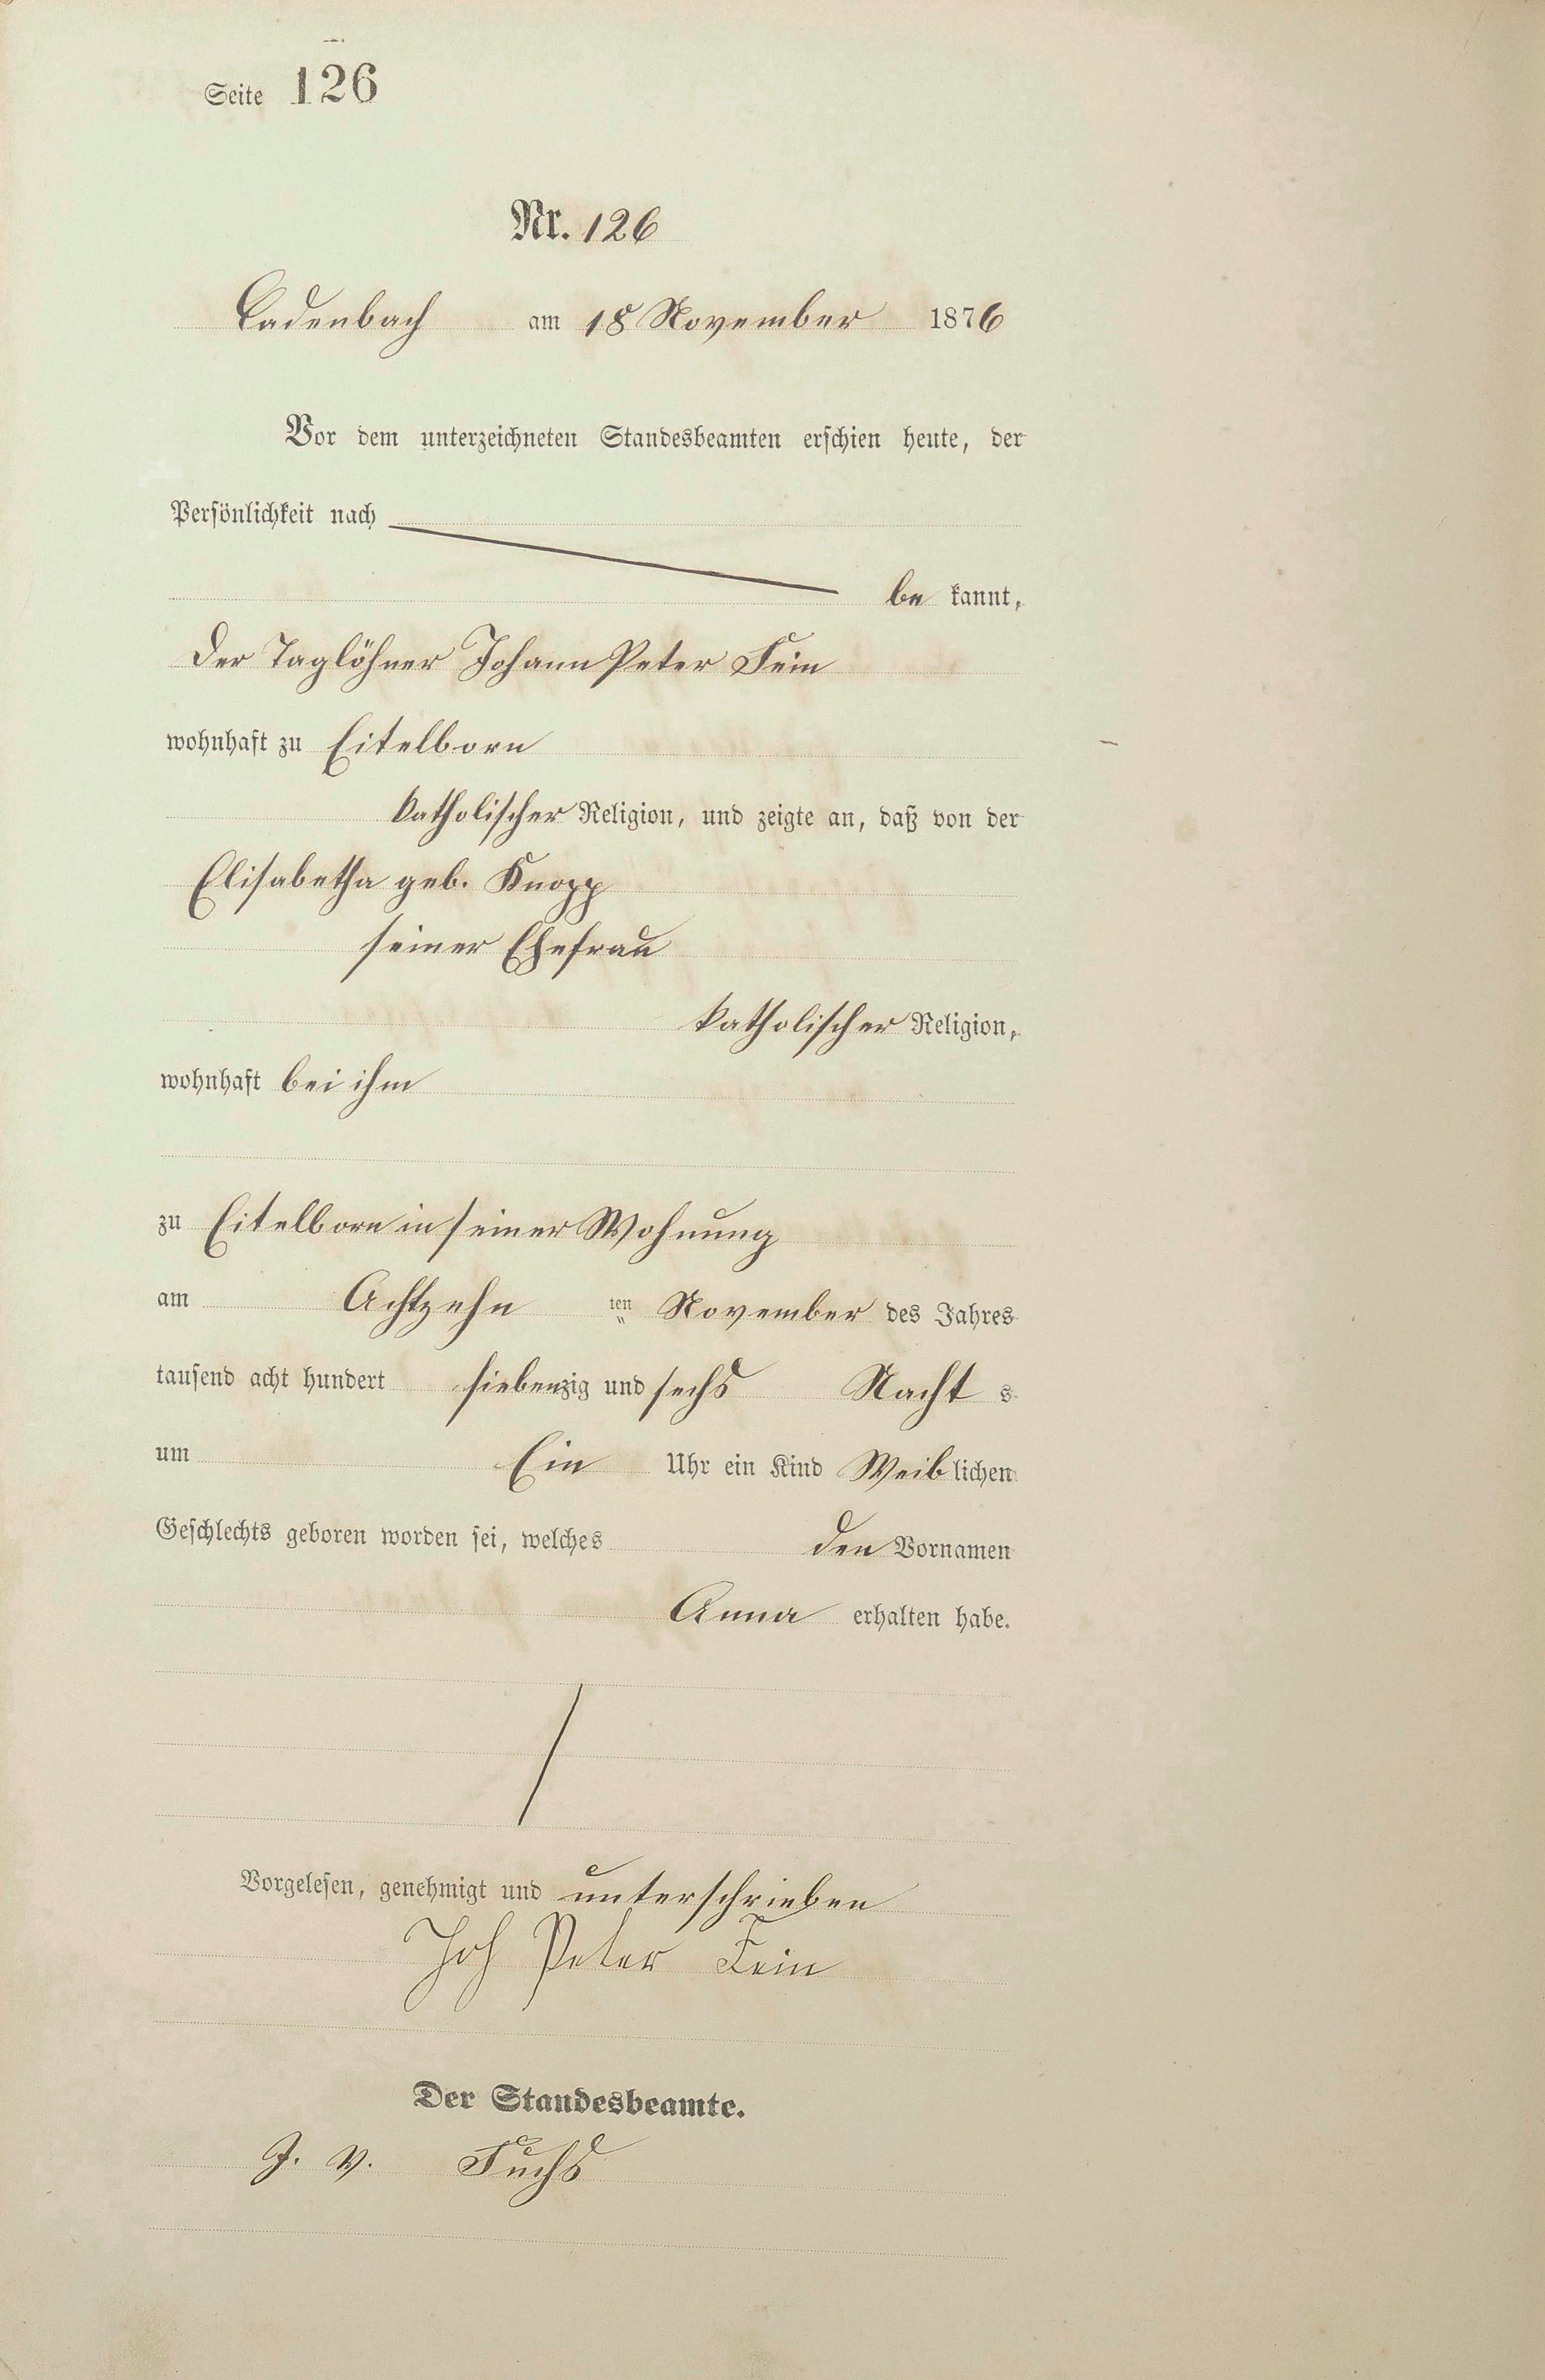 Seite 126
Nr. 126
Cadenbach am 18 November 1876
Vor dem unterzeichneten Standesbeamten erschien heute, der
Persönlichkeit nach
be kannt,
der Taglöhner Johann Peter Fein
wohnhaft zu Eitelborn
katholischer Religion, und zeigte an, daß von der
Elisabetha geb. Knopp
seiner Ehefrau
katholischer Religion,
wohnhaft bei ihm
zu Eitelborn in seiner Wohnung
am Achtzehn ten November des Jahres
tausend acht hundert siebenzig und sechs Nacht s
um Ein Uhr ein Kind Weiblichen
Geschlechts geboren worden sei, welches den Vornamen
Anna erhalten habe.
Vorgelesen, genehmigt und unterschrieben
Joh Peter Fein
Der Standesbeamte.
J. V. Fuchs